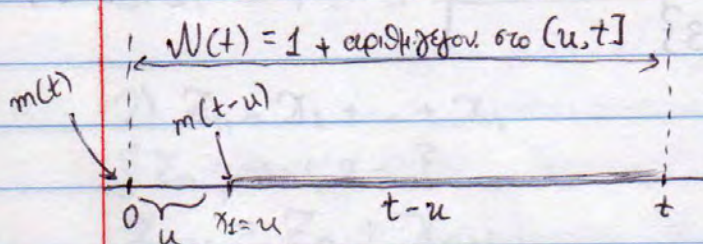 N(t) = 1 + αριθμ. γεγον. στο (u, t]
m(t)
m(t-u)
0 u x₁=u t-u t